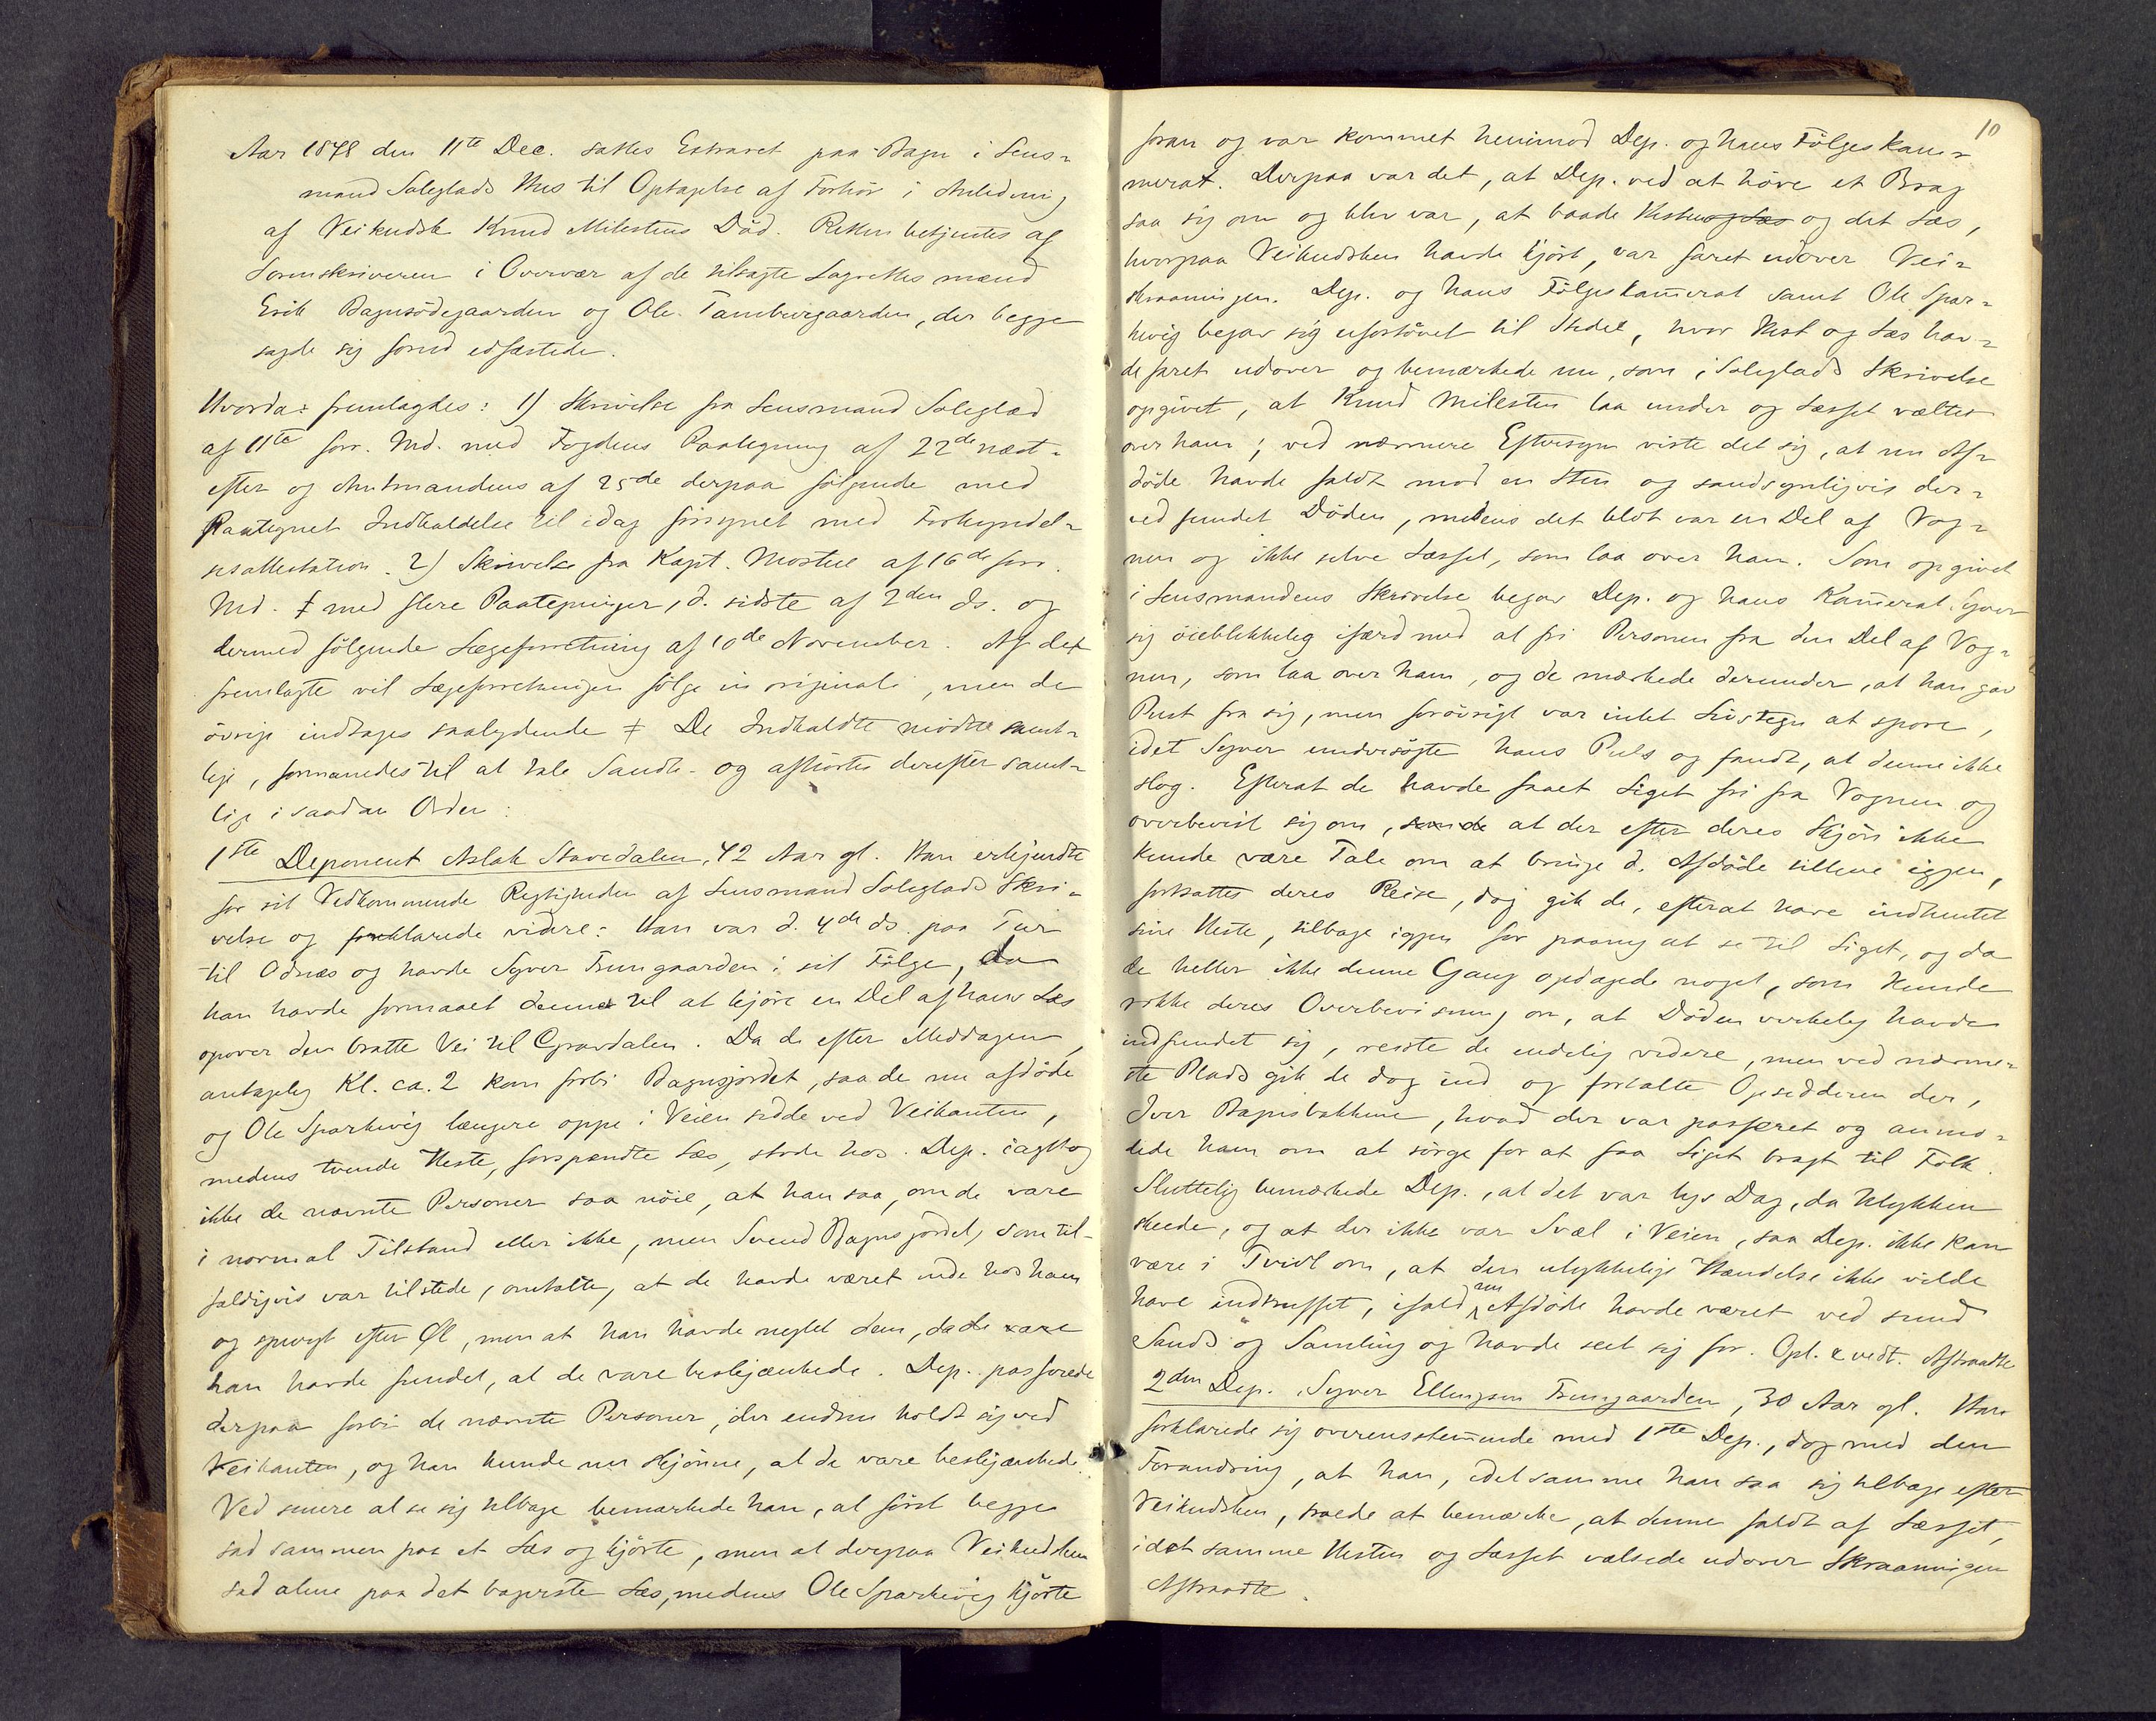 Aar 1878 den 11te Dec. sattes Extraret paa Bagn i Lens-
mand Soleglads Hus til Optagelse af Forhör i Anledning
af Veikudsk Knud Milestens Död. Retten betjentes af
Sorenskriveren i Overvær af de tilsagte Lagrettesmænd
Erik Bagnsödegaarden og Ole Tamburgaarden, der begge
sagde sig forud edfæstede.
Hvorda: fremlagdes: 1) Skrivelse fra Lensmand Soleglad
af 11te forr. Md. med Fogdens Paategning af 22de næst-
efter og Amtmandens af 25de derpaa fölgende med
Paategnet Indkaldelse til idag forsynet med Forkyndel-
sesattestation. 2) Skrivelse fra Kapt. Mostue af 16de forr.
Md. ‡ med flere Paategninger, d. sidste af 2den ds. og
dermed fölgende Lægeforretning af 10de November. Af det
fremlagte vil Lægeforretningen fölge in originali, men de
övrige indtages saalydende ‡ De Indkaldte mödte samt-
lige, formanedes til at tale Sandh. og afhörtes derefter samt-
lige i saadan Orden:
1ste Deponent Aslak Stavedalen, 42 Aar gl. Han erkjendte
for sit Vedkommende Rigtigheden af Lensmand Soleglads Skri-
velse og forklarede videre: Han var d. 4de ds. paa Tur
til Odnæs og havde Syver Trungaarden i sit Fölge, da
han havde formaaet denne til at kjöre en Del af hans Læs
opover den bratte Vei til Gravdalen. Da de efter Middagen,
antagelig Kl. ca. 2 kom forbi Bagnsjordet, saa de nu afdöde
og Ole Sparkevig længere oppe i Veien sidde ved Veikanten,
medens tvende Heste, forspændte Læs, stode hos. Dep. iagttog
ikke de nævnte Personer saa nöie, at han saa, om de vare
i normal Tilstand eller ikke, men Svend Bagnsjordet, som til-
fældigvis var tilstede, omtalte, at de havde været inde hos ham
og spurgt efter Öl, men at han havde negtet dem, da de vare
han havde fundet, at de vare beskjænkede. Dep. passerede
derpaa forbi de nævnte Personer, der endnu holdt sig ved
Veikanten, og han kunde nu skjönne, at de vare beskjænkede.
Ved senere at se sig tilbage bemærkede han, at först begge
sad sammen paa et Læs og kjörte, men at derpaa Veikudsken
sad alene paa det bagerste Læs, medens Ole Sparkevig kjörte
10
foran og var kommet henimod Dep. og hans Fölgeskam-
merat. Derpaa var det, at Dep. ved at höre et Brag
saa sig om og blev var, at baade Hesten og Læs og det Læs,
hvorpaa Veikudsken havde kjört, var faret udover Vei-
skraaningen. Dep. og hans Fölgeskamerat samt Ole Spar-
kevig begav sig ufortövet til Stedet, hvor Hest og Læs hav-
de faret udover og bemærkede nu, som i Soleglads Skrivelse
opgivet, at Knud Milesten laa under og Læsset væltet
over ham; ved nærmere Eftersyn viste det sig, at nu Af-
döde havde faldt mod en Sten og sandsynligvis der-
ved fundet Döden, medens det blot var en Del af Vog-
nen og ikke selve Læsset, som laa over ham. Som opgivet
i Lensmandens Skrivelse begav Dep. og hans Kamerat Syver
sig öieblikkelig ifærd med at fri Personen fra den Del af Vog-
nen, som laa over ham, og de mærkede derunder, at han gav
Pust fra sig, men forövrigt var intet Livstegn at spore,
idet Syver undersögte hans Puls og fandt, at denne ikke
slog. Efterat de havde faaet Liget fri fra Vognen og
overbevist sig om, at der efter deres Skjön ikke
kunde være Tale om at bringe d. Afdöde tillive igjen,
fortsattes deres Reise, dog gik de, efterat have indhentet
sine Heste, tilbage igjen for paany at se til Liget, og da
de heller ikke denne Gang opdagede noget, som kunde
rokke deres Overbevisning om, at Döden virkelig havde
indfundet sig, reiste de endelig videre, men ved nærme-
ste Plads gik de dog ind og fortalte Opsidderen der,
Iver Bagnsbakkene, hvad der var passeret og anmo-
dede ham om at sörge for at faa Liget bragt til Folk.
Sluttelig bemærkede Dep., at det var lys Dag, da Ulykken
skede, og at der ikke var Svæl i Veien, saa Dep. ikke kan
være i Tvivl om, at den ulykkelige Hændelse ikke vilde
have indtruffet, ifald nu Afdöde havde været ved sund
Sands og Samling og havde seet sig for. Opl. & vedt. Aftraadte
2den Dep. Syver Ellingsen Trungaarden, 30 Aar gl. Han
forklarede sig overensstemmende med 1ste Dep., dog med den
Forandring, at han, idetsamme han saa sig tilbage efter
Veikudsken, troede at bemærke, at denne faldt af Læsset,
idet samme Hesten og Læsset væltede udover Skraaningen
Aftraadte.